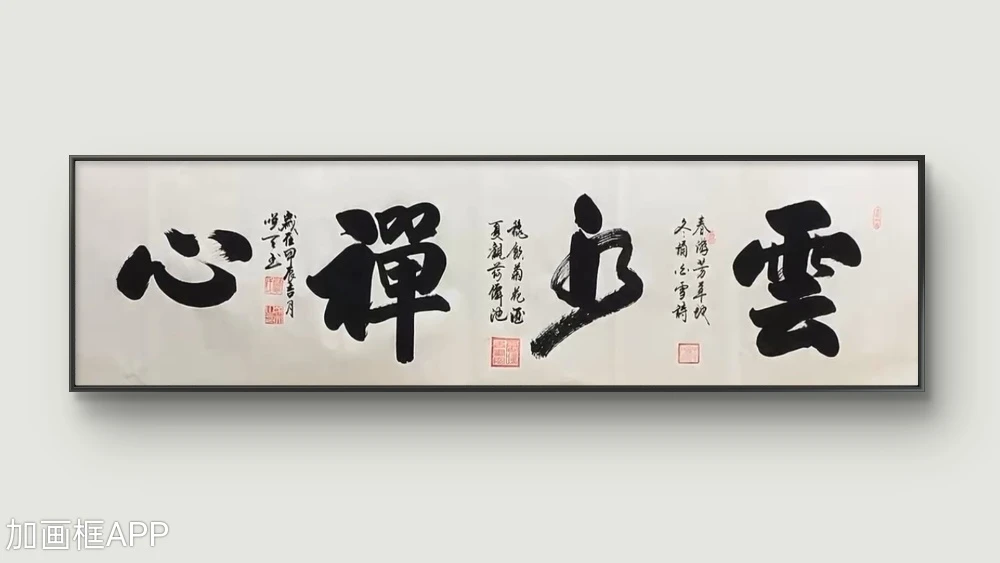 雲水禪心
春游芳草地
冬白雪詩
龝飲菊花酒
夏觀荷池
歲在甲辰吉月
加画框APP